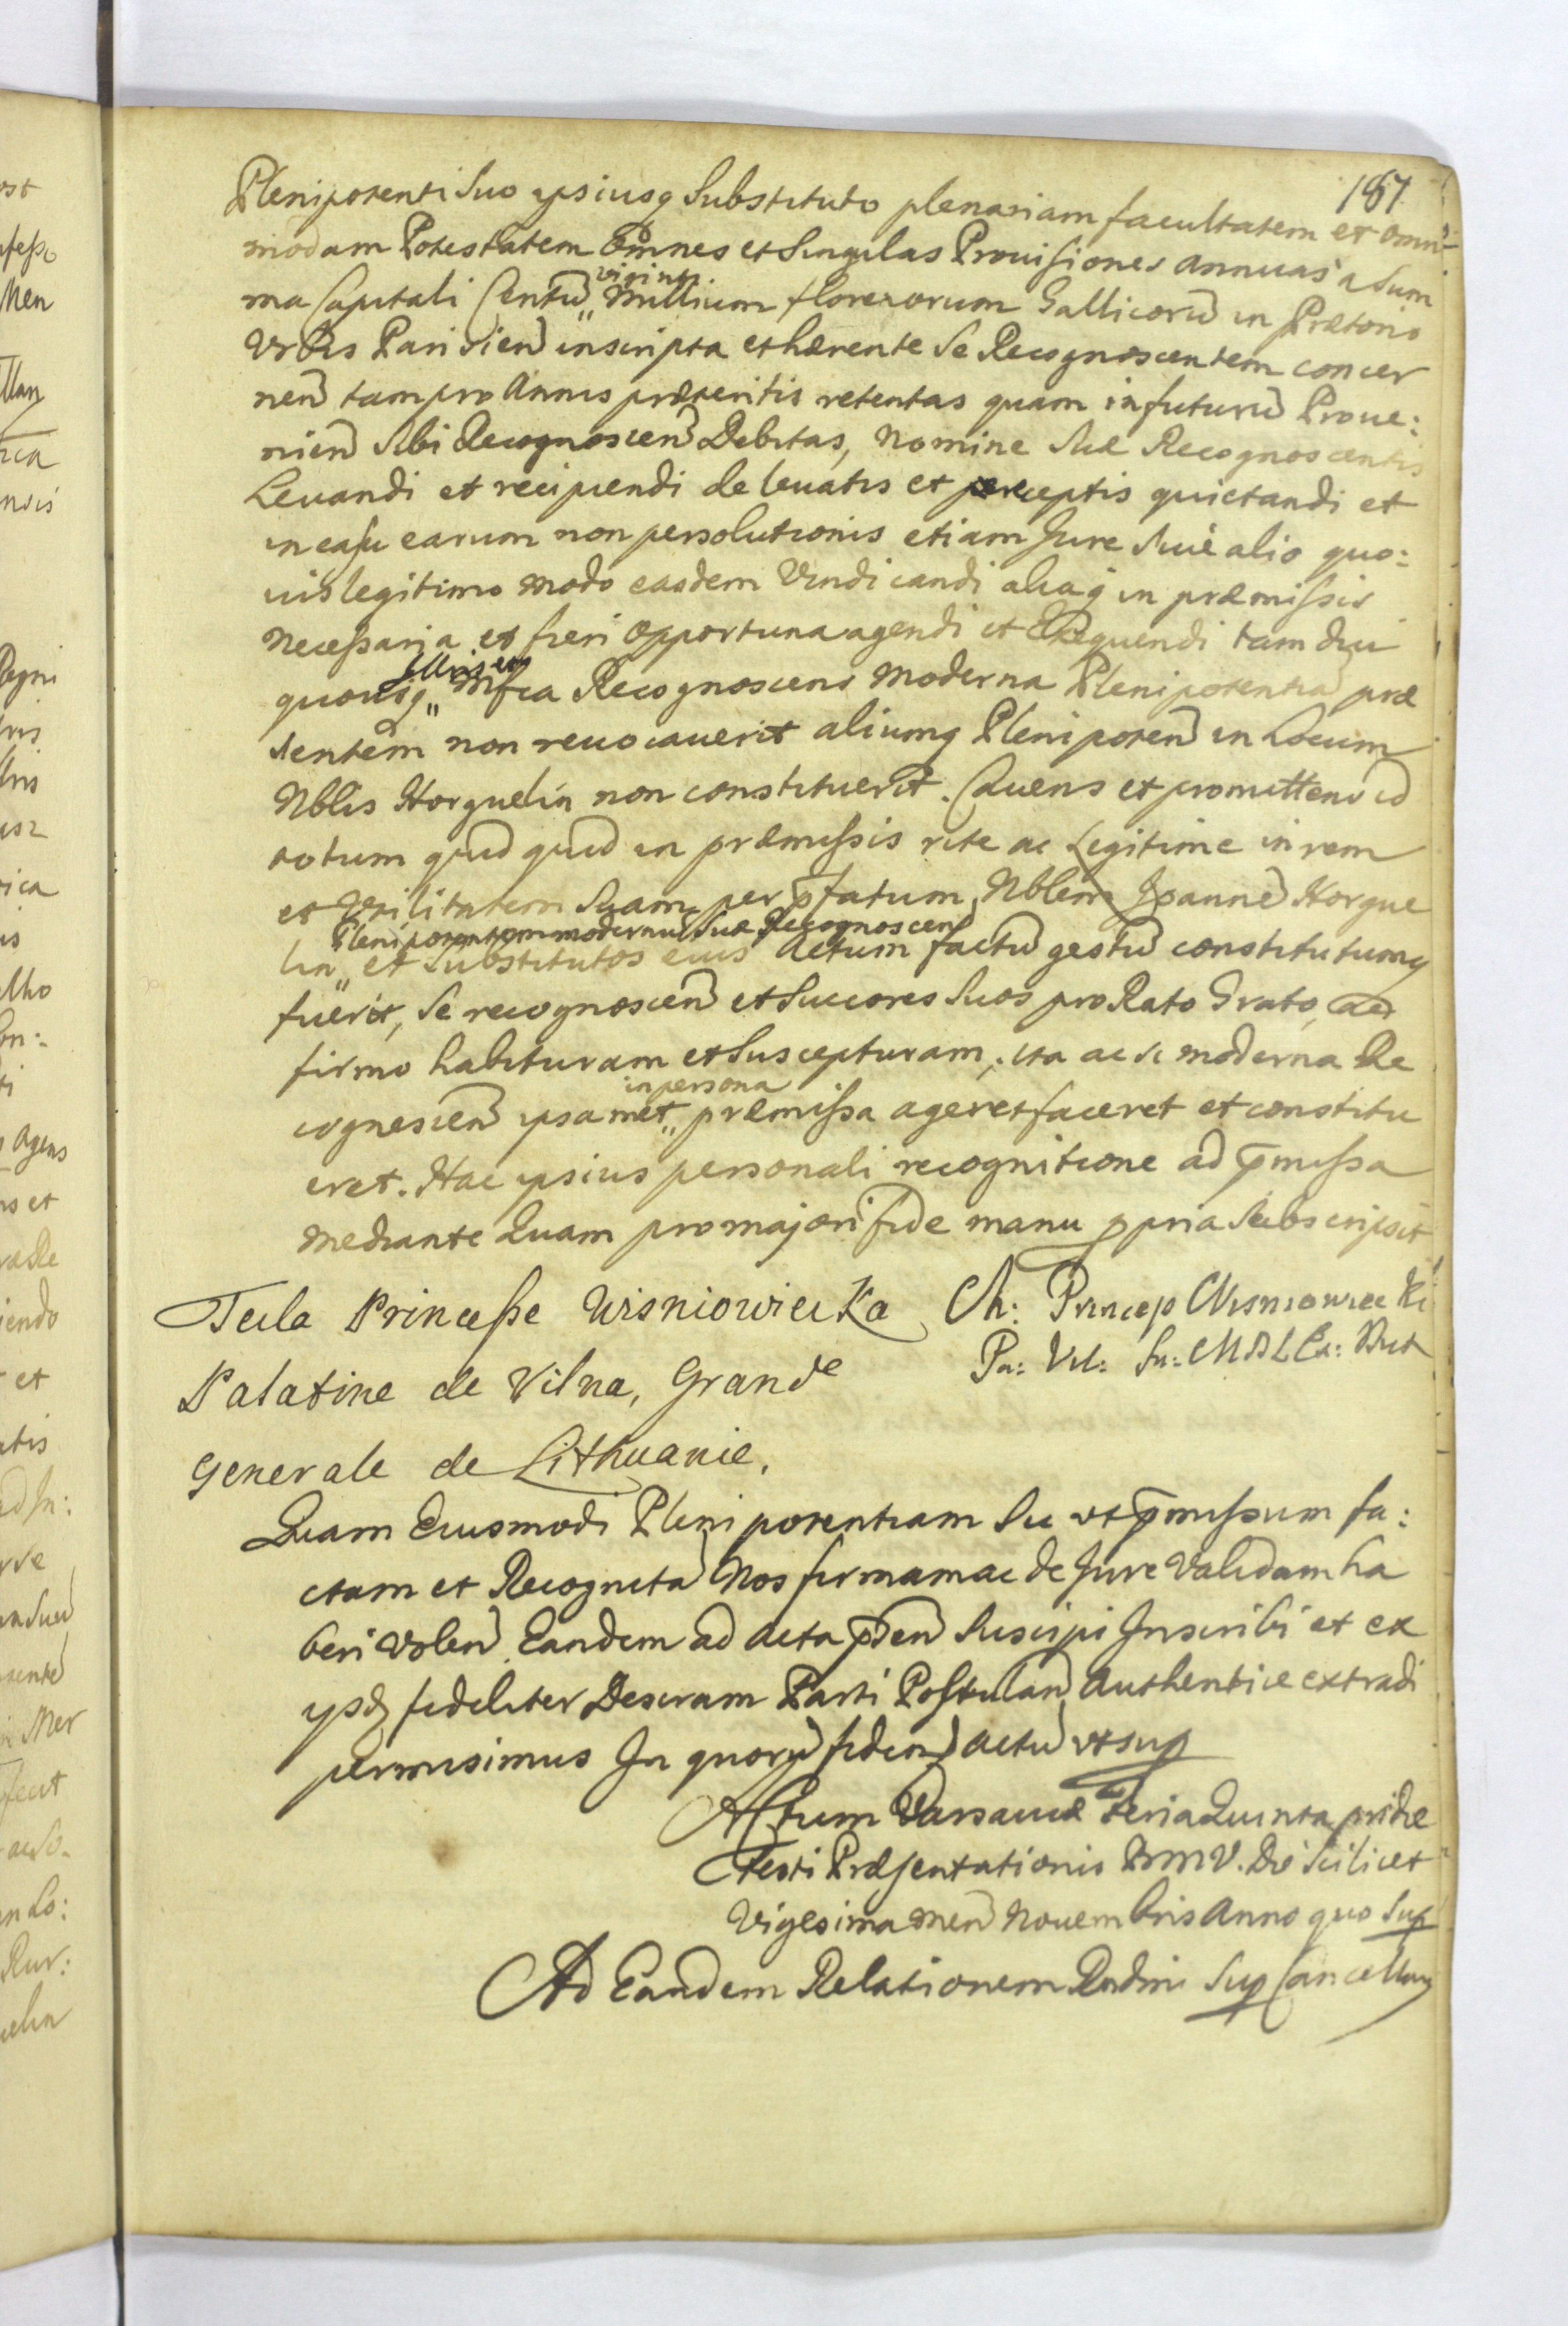 187
Plenipotenti Suo ipsiusq Substituto plenariam facultatem et omni-
modam Potestatem omnes et Singulas Prouisiones annuas a Sum
viginti
ma Capitali Centũ " Millium florenorum Gallicorũ in Prætorio
Vrbis Parisien inscripta et hærente Se Recognoscentem concer
nen tam pro Annis præteritis retentas quam in futurũ Proue:
nien Sibi Recognoscen Debitas, Nomine Suæ Recognoscentis
Leuandi et recipiendi de leuatis et perceptis quietandi et
in casu earum non persolutionis etiam Jure Siue alio quo:
uis legitimo modo easdem Vindicandi aliaq in præmissis
Necessaria et fieri opportuna agendi et Exequendi tam diu
quousq " Mfca Recognoscens moderna Plenipotentiã præ
sentem non reuocauerit aliumq Plenipoten in Locum
Nblis Horguelin non constituerit. Cauens et promittens id
totum quidquid in præmissis rite ac Legitime in rem
et Vtilitatem Suam per p̃fatum Nblem Joannẽ Horgue
Plenipotentem modernũ Suæ Recognoscen
lin " et Substitutos eius actum factũ gestũ constitutumq
fuerit, Se recognoscen et Succores Suos pro Rato Grato, ac
firmo habituram et Suscepturam, ita ac si moderna Re
in persona
cognoscen ipsamet " præmissa ageret faceret et constitu
eret. Hac ipsius personali recognitione ad p̃missa
mediante Quam pro majori fide manu ppria Subscripsit
Tecla Princesse Wisniowiecka
Palatine de Vilna, Grande
Generale de Lithuanie.
Ch: Princeps Wisniowiecki
Pa: Vil: Su: M D L Ex: Dux
Quam Eiusmodi Plenipotentiam Sic vt p̃missum fa:
ctam et Recognitã Nos firmam ac de Jure Validam ha
beri Volen Eandem ad Acta p̃den Suscipi Inscribi et ex
ysdq fideliter Descram Parti Postulan authentice extradi
permisimus In quorũ fidem Actũ vt sup
Actum Varsauiæ Feria Quinta pridie
Festi Præsentationis BMV. Die Scilicet
Vigesima Men Nouembris Anno quo Sup
Ad Eandem Relationem Rndmi Sup Cancellarij